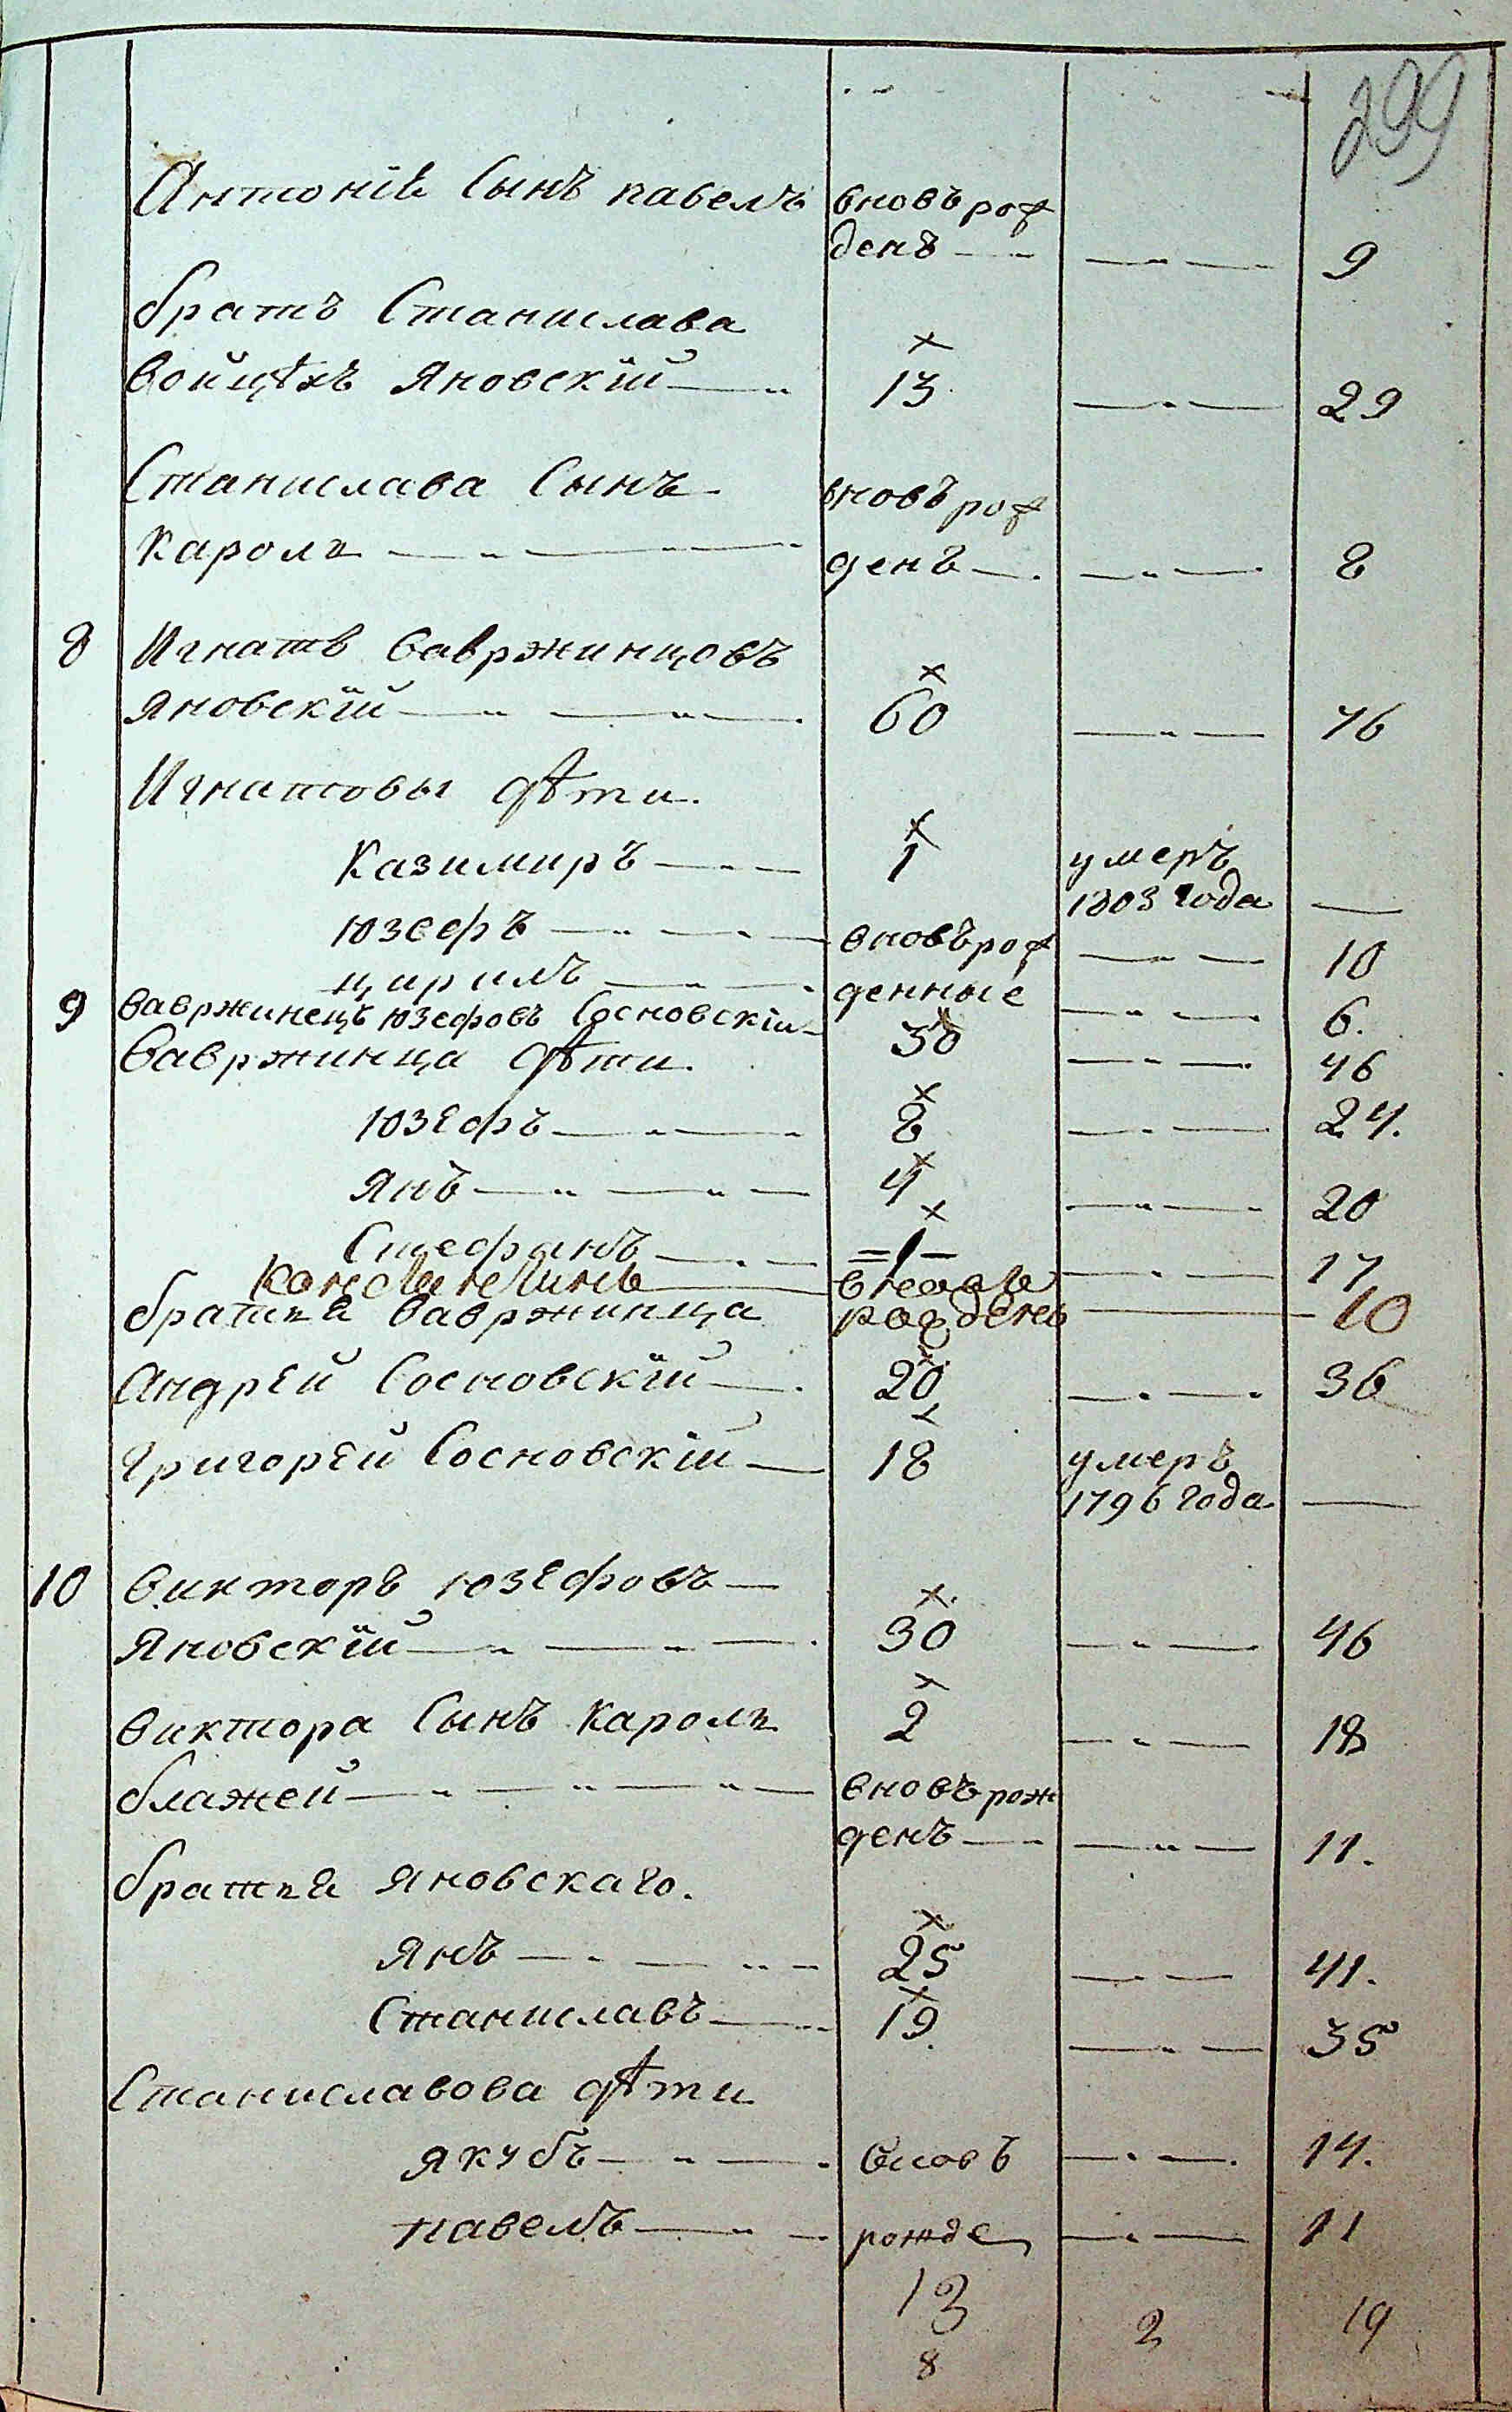 299
Антонiя Сынъ павелъ вновь рож
денъ — 9
братъ Станислава
войцѣхъ Яновскiй — 13 — 29
Станислава Сынъ вновь рож
кароль — денъ — 8
8 Игнатъ вавржинцовъ
Яновскiй — 60 — 76
Игнатовы дѣти.
Казимиръ — 1 умеръ
1803 года —
юзефъ — вновь рож — 10
цирилъ — денные — 6.
9 вавржинецъ юзефовъ Сосновскiй — 30 — 46
вавржинца дѣти.
юзефъ — 8 — 24.
Янъ — 4 — 20
Стефанъ — =1— — 17
Константинъ — вновь
братья вавржинца рожденъ — 10
Андрей Сосновскiй — 20 — 36
григорей Сосновскiй — 18 умеръ
1796 года —
10 викторъ юзефовъ —
Яновскiй — 30 — 46
виктора Сынъ Кароль 2 — 18
блажей — вновь рож
денъ — 11.
братья Яновскаго.
Янъ — 25 — 41.
Станиславъ — 19. — 35
Станиславова дѣти
якубъ — вновь — 14.
павелъ — рожде — 11
13 2 19
8